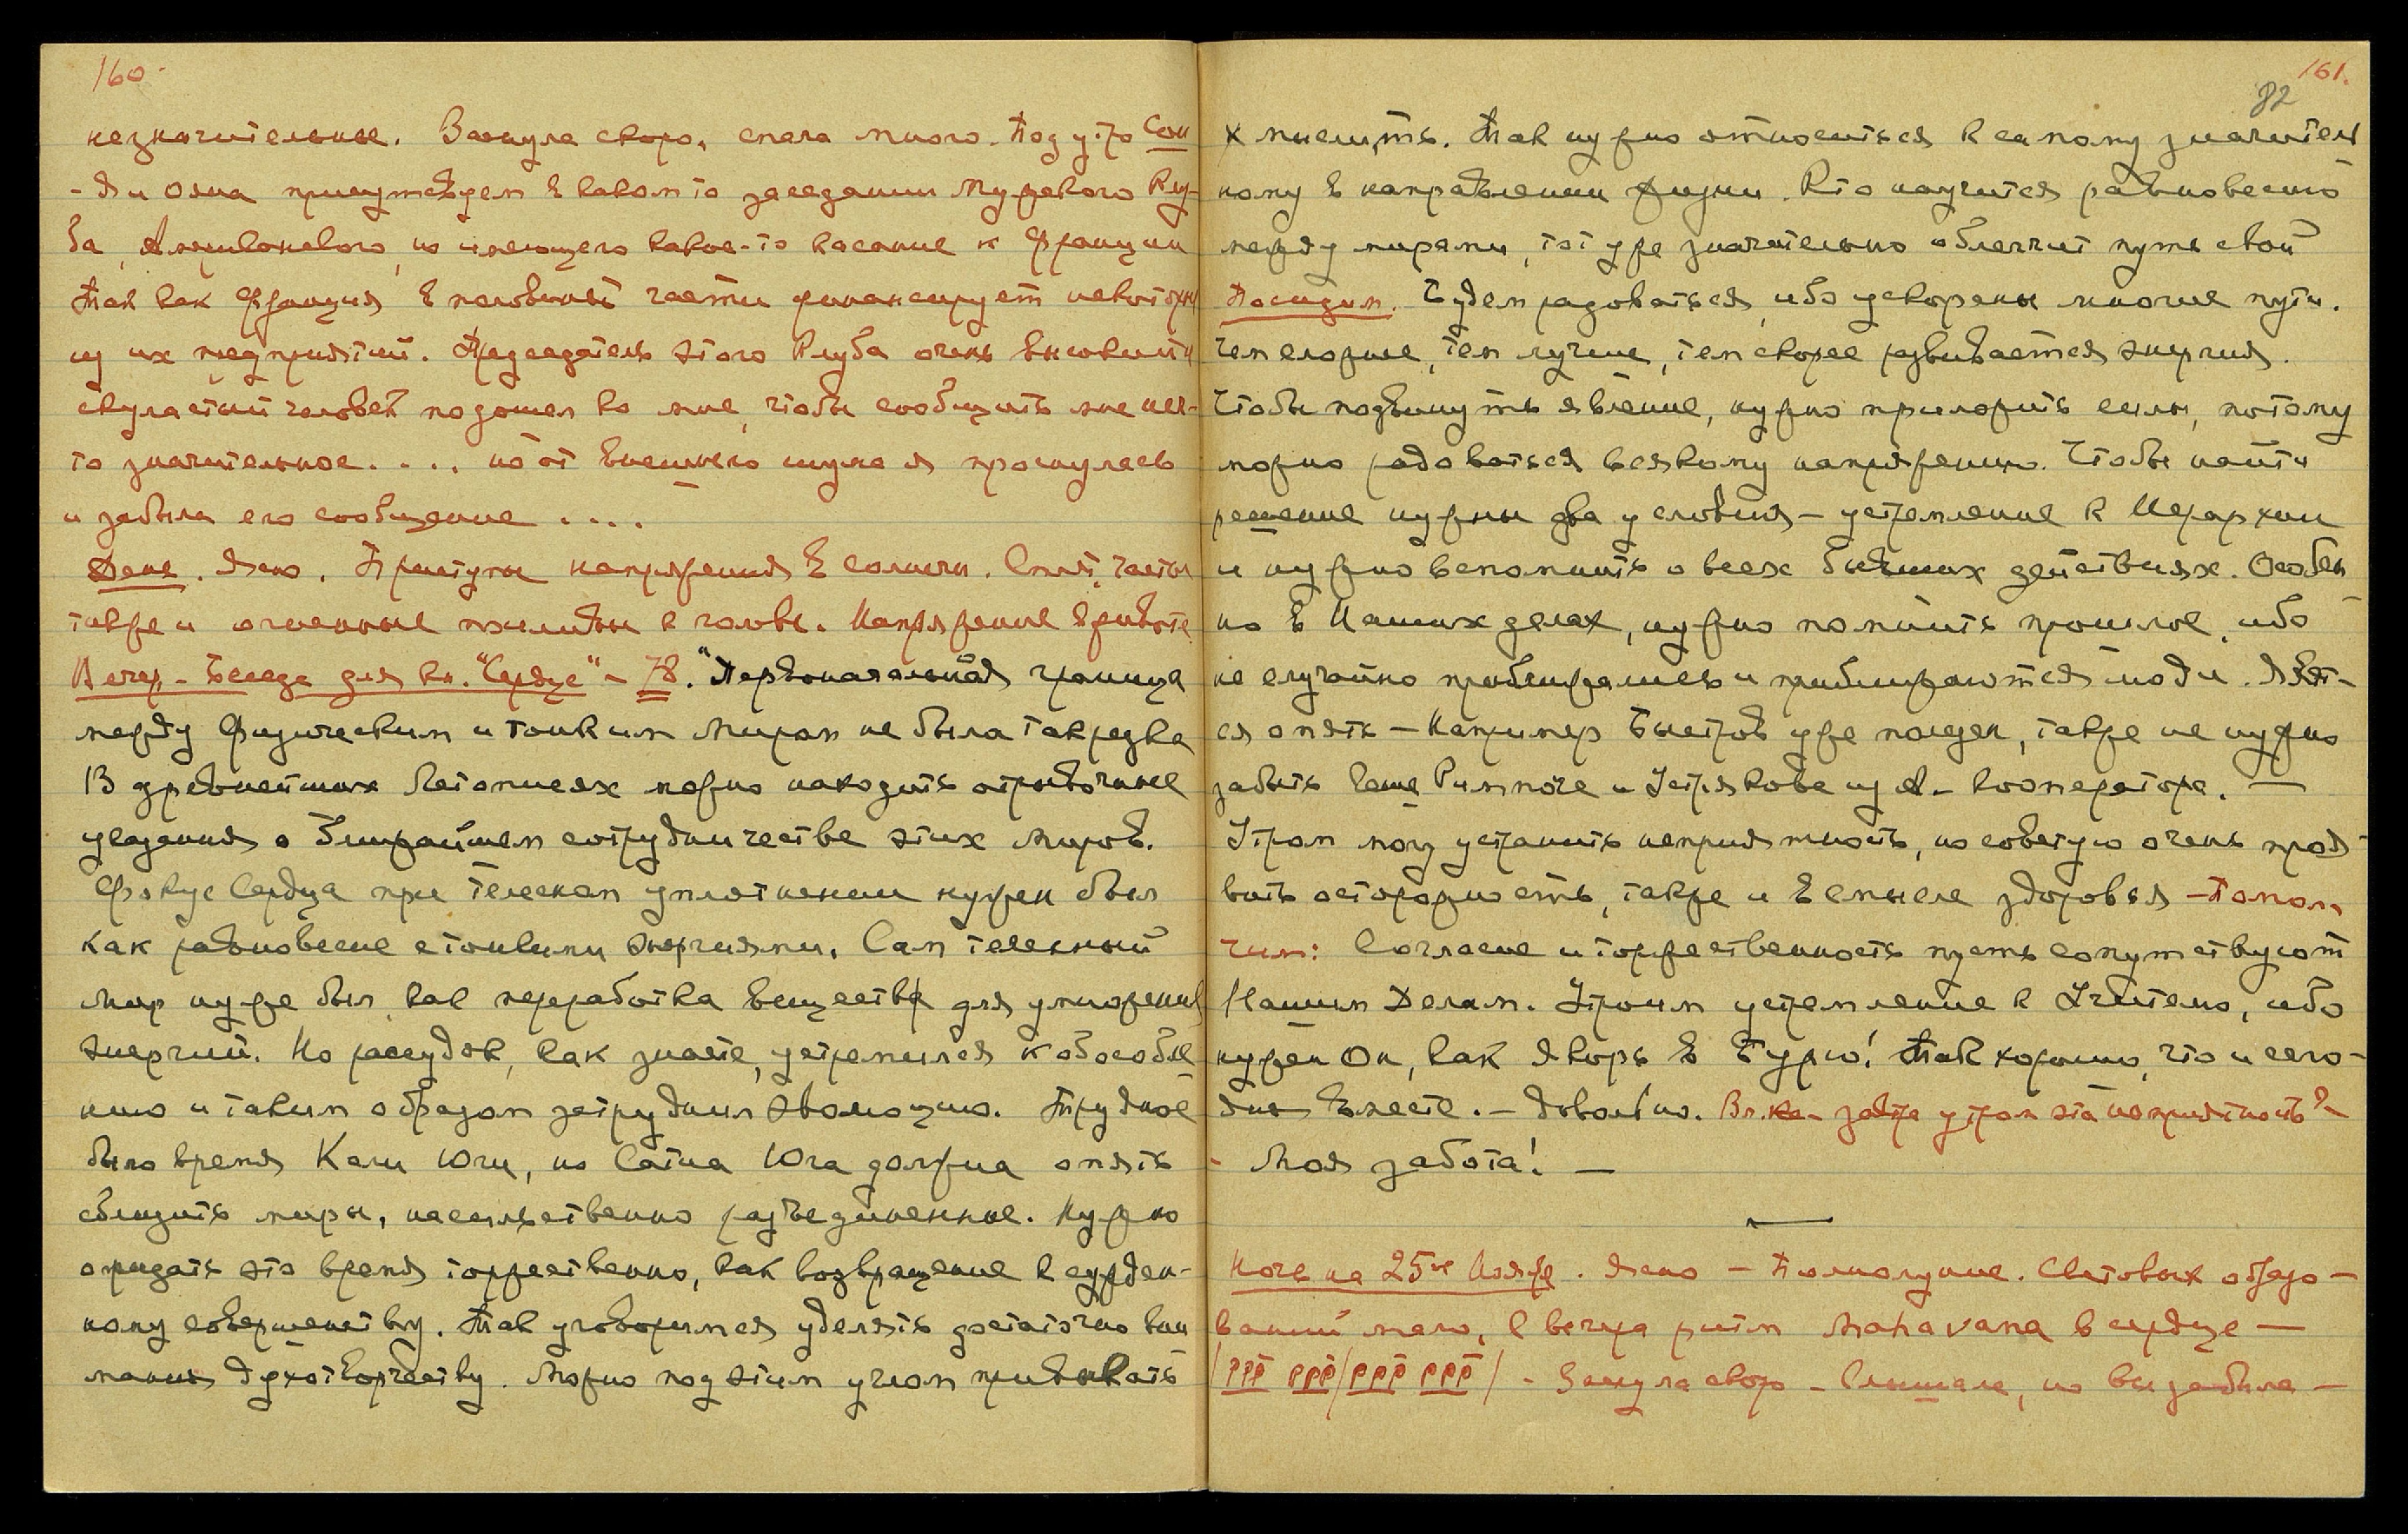 160.
незначительные. Заснула скоро, спала много. Под утро Сон
- Я и Ояна присутствуем в каком то заседании Мужского Клу-
ба, Американского, но имеющего какое-то касание к Франции
Так как Франция в половинной части финансирует некоторы
из их предприятий. Председатель этого Клуба очень высокий и
скуластый человек подошел ко мне, чтобы сообщить мне неч-
то значительное. . . . но от внешнего шума я проснулась
и забыла его сообщение . . . .
День. Ясно. Приступы напряжения в солнечн. Сплет. часты
также и огненные приливы к голове. Напряжение в животе
Вечер - Беседа для кн. "Сердце" - 78. "Первоначальная граница
между физическим и тонким Миром не была так резка
В древнейших Летописях можно находить отрывочные
указания о ближайшем сотрудничестве этих Миров.
Фокус Сердца при телесном уплотнении нужен был
как равновесие с тонкими энергиями. Сам телесный
Мир нужен был, как переработка вещества для умножения
энергий. Но рассудок, как знаете, устремился к обособле
нию и таким образом затруднил эволюцию. Трудное
было время Кали Юги, но Сатиа Юга должна опять
сблизить миры, насильственно разъединенные. Нужно
ожидать это время торжественно, как возвращение к сужден-
ному совершенству. Так уговоримся уделять достаточно вни
мания духотворчеству. Можно под этим углом привыкать
161.
82
к мыслить. Так нужно относиться к самому значитель
ному в направлении жизни. Кто научится равновесию
между мирами, тот уже значительно облегчит путь свой
Посидим. Будем радоваться, ибо ускорены многие пути.
Чем сложнее, тем лучше, тем скорее развивается энергия.
Чтобы подвинуть явление, нужно приложить силы, потому
можно радоваться всякому напряжению. Чтобы найти
решение нужны два условия - устремление к Иерархии
и нужно вспомнить о всех бывших действиях. Особен
но в Наших делах, нужно помнить прошлое, ибо
не случайно приближались и приближаются люди. Явят-
ся опять - Например Быстров уже полезен, также не нужно
забыть Геше Римпоче и Устрякова из А. - кооператора. —
Утром могу устранить неприятность, но советую очень проя-
вить осторожность, также и в смысле здоровья - Помол-
чим: Согласие и торжественность пусть сопутствуют
Нашим Делам. Утроим устремление к Учителю, ибо
нужен Он, как якорь в Бурю! Так хорошо, что и сего-
дня вместе. - Довольно. Вл. завтра утром эта неприятность?
- Моя забота! —
Ночь на 25ое Ноября. Ясно - Полнолуние. Световых образо-
ваний мало, с вечера ритм Mahavana в сердце —
- Заснула скоро - Слышала, но все забыла —